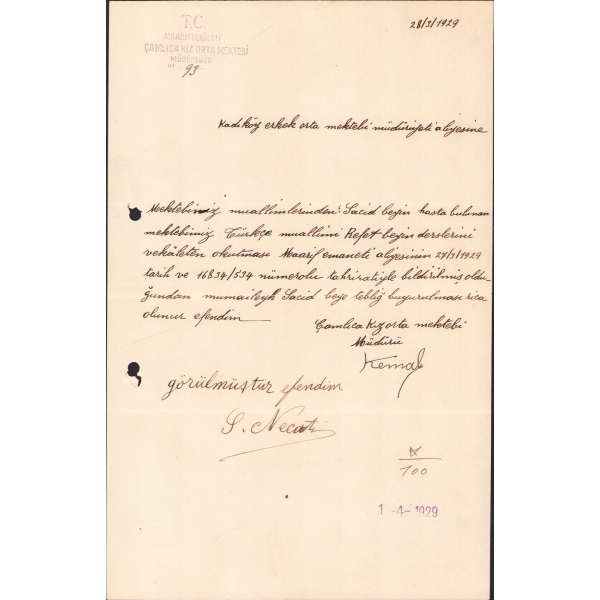 T.C.
MAARİF VEKÂLETİ
ÇAMLICA KIZ ORTA MEKTEBİ
MÜDÜRLÜĞÜ
93
28/3/1929
Kadıköy erkek orta mektebi müdüriyeti aliyesine
Mektebiniz muallimlerinden Sacid beyin hasta bulunan
mektebimiz Türkçe muallimi Refet beyin derslerini
vekâleten okutması Maarif emaneti aliyesinin 27/3/1929
tarih ve 16834/534 nümerolu tahriratiyle bildirilmiş oldu
ğundan mumaileyh Sacid beye tebliğ buyurulması rica
olunur efendim
Çamlıca Kız orta mektebi
Müdürü
Kemal
görülmüştur efendim
S. Necati
100
1 -4- 1929